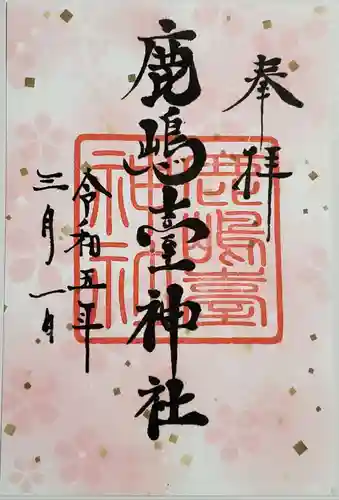 奉拝
鹿嶋臺神社
鹿嶋臺神社
令和五年
三月一日